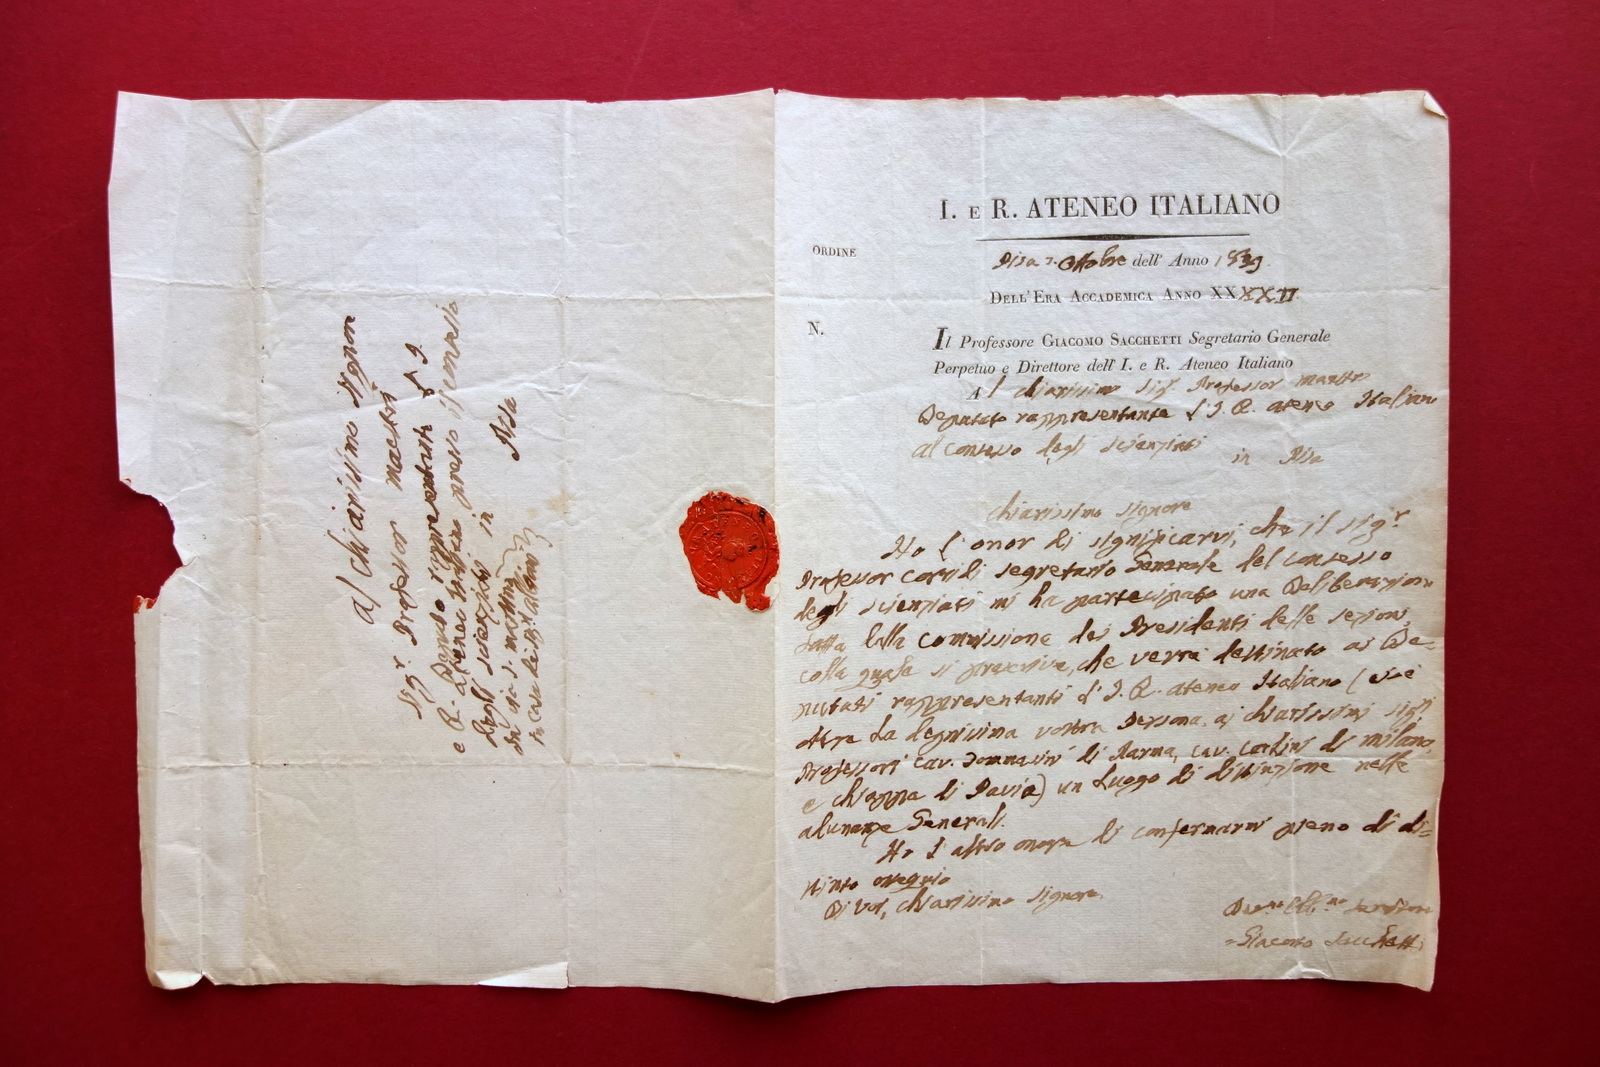 I. E R. ATENEO ITALIANO
ORDINE
Pisa 7. Ottobre dell' Anno 1839.
DELL' ERA ACCADEMICA ANNO XXXXII
N.
Il Professore GIACOMO SACCHETTI Segretario Generale
Perpetuo e Direttore dell' I. e R. Ateneo Italiano
Al chiarissimo sigr. Professor maestri
Deputato rappresentante l'I. R. ateneo Italiano
al consesso degli scienziati
in Pisa
chiarissimo signore
Ho l'onor di significarvi, che il sigr.
Professor corridi segretario Generale del consesso
degli scienziati mi ha partecipato una Deliberazione
fatta dalla commissione dei Presidenti delle sezioni,
colla quale si prescrive, che verrà destinato ai De=
putati rappresentanti l'I. R. ateneo Italiano (cioè
oltre la degnissima vostra Persona, ai chiarissimi sigri
Professori cav. Tommasini di Parma, cav. carlini di milano,
e chiappa di Pavia) un luogo di distinzione nelle
adunanze Generali.
Ho l'altro onore di confermarmi pieno di di=
stinto ossequio
Di Voi, chiarissimo signore
servitore
Giacomo Sacchetti
al chiarissimo signore
sigr. Professor maestri
Deputato rappresentante l'I.
e R. ateneo Italiano presso il consesso
degli scienziati in Pisa
in via s. martino
in casa